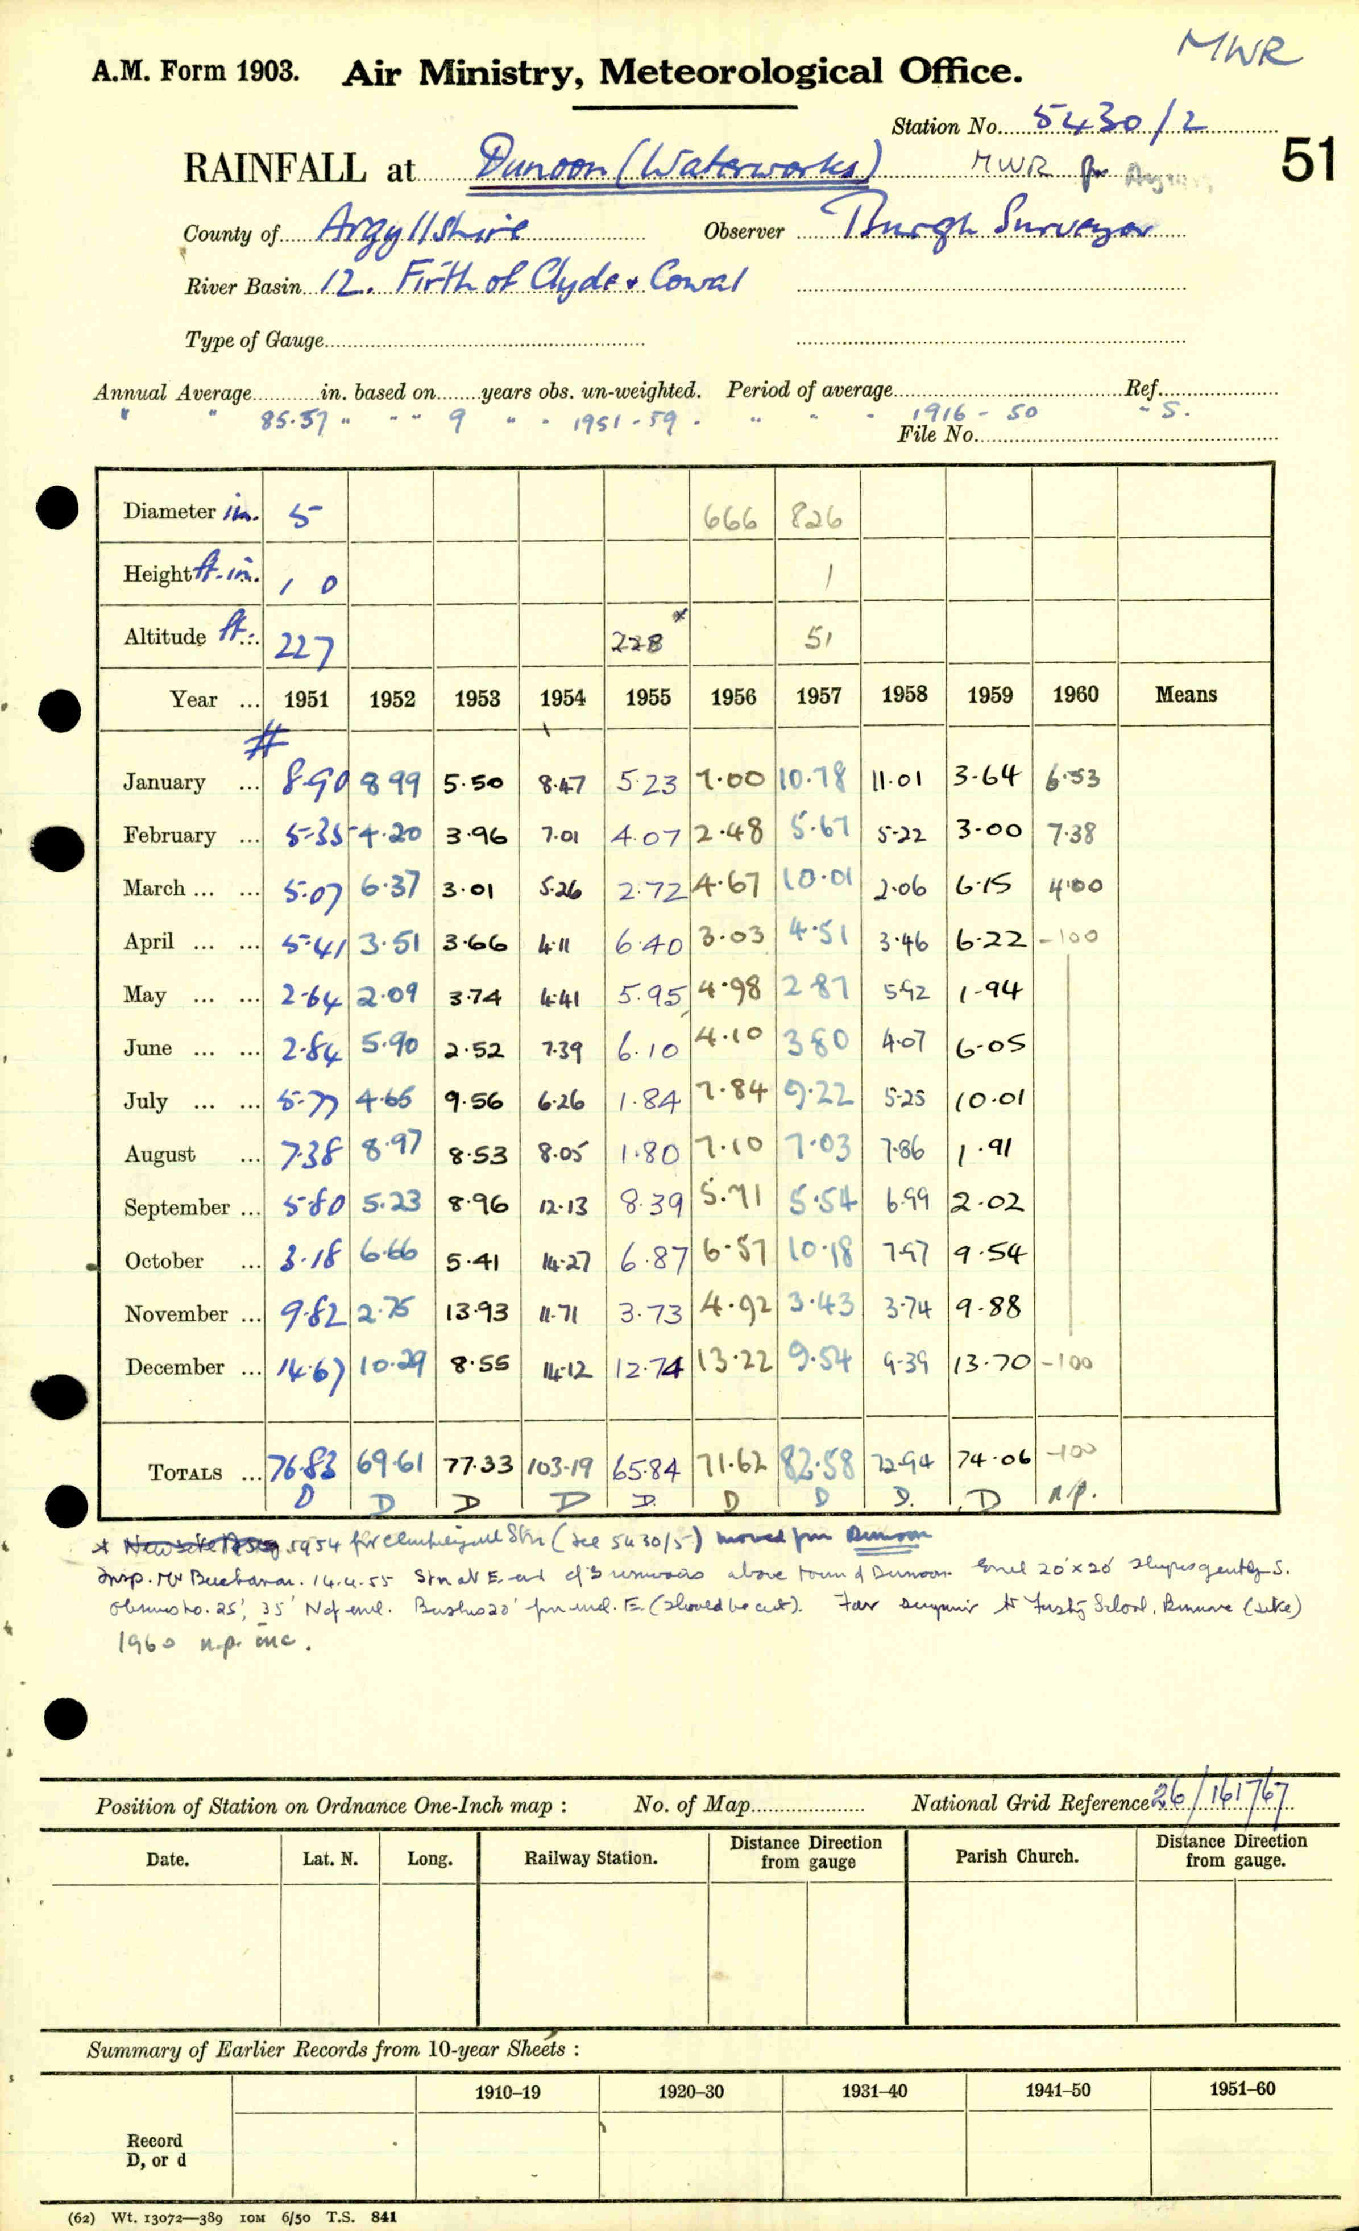 MWR
A.M. Form 1903. Air Ministry, Meteorological Office.
Station No. 5430/2
RAINFALL at Dunoon (Waterworks) MWR for
51
County of Argyllshire Observer Burgh Surveyor
River Basin 12. Firth of Clyde & Cowal
Type of Gauge
Annual Average in. based on years obs. un-weighted. Period of average Ref.
" " 85.57 " " " 9 " " 1951-59 . " " " 1916-50 " S.
File No.
Diameter in. 5 666 826
Height ft. in. 1 0 1
Altitude ft. 227 228* 51
Year ... 1951 1952 1953 1954 1955 1956 1957 1958 1959 1960 Means
#
January ... 8.90 8.99 5.50 8.47 5.23 7.00 10.78 11.01 3.64 6.53
February ... 5.35 4.20 3.96 7.01 4.07 2.48 5.67 5.22 3.00 7.38
March ... ... 5.07 6.37 3.01 5.26 2.72 4.67 10.01 2.06 6.15 4.00
April ... ... 5.41 3.51 3.66 4.11 6.40 3.03 4.51 3.46 6.22 -100
May ... ... 2.64 2.09 3.74 4.41 5.95 4.98 2.87 5.92 1.94
June ... ... 2.84 5.90 2.52 7.39 6.10 4.10 3.80 4.07 6.05
July ... ... 5.77 4.65 9.56 6.26 1.84 7.84 9.22 5.25 10.01
August ... 7.38 8.97 8.53 8.05 1.80 7.10 7.03 7.86 1.91
September ... 5.80 5.23 8.96 12.13 8.39 5.71 5.54 6.99 2.02
October ... 3.18 6.66 5.41 14.27 6.87 6.57 10.18 7.97 9.54
November ... 9.82 2.75 13.93 11.71 3.73 4.92 3.43 3.74 9.88
December ... 14.67 10.29 8.55 14.12 12.74 13.22 9.54 9.39 13.70 -100
TOTALS ... 76.83 69.61 77.33 103.19 65.84 71.62 82.58 72.94 74.06 -100
D D D D D. D D D. D n.p.
* 1954 for Stn (see 5430/5) moved from Dunoon
Insp. Mr Buchanan. 14.4.55 Stn at E. end of 3 above town of Dunoon 20'x20' slopes gently S.
25', 35' N of encl. Bushes 20' from encl. E. (should be cut).
1960 n.p. inc.
Position of Station on Ordnance One-Inch map : No. of Map National Grid Reference 26/161767
Date. Lat. N. Long. Railway Station. Distance Direction from gauge Parish Church. Distance Direction from gauge.
Summary of Earlier Records from 10-year Sheets :
1910–19 1920–30 1931–40 1941–50 1951–60
Record
D, or d
(62) Wt. 13072—389 10M 6/50 T.S. 841